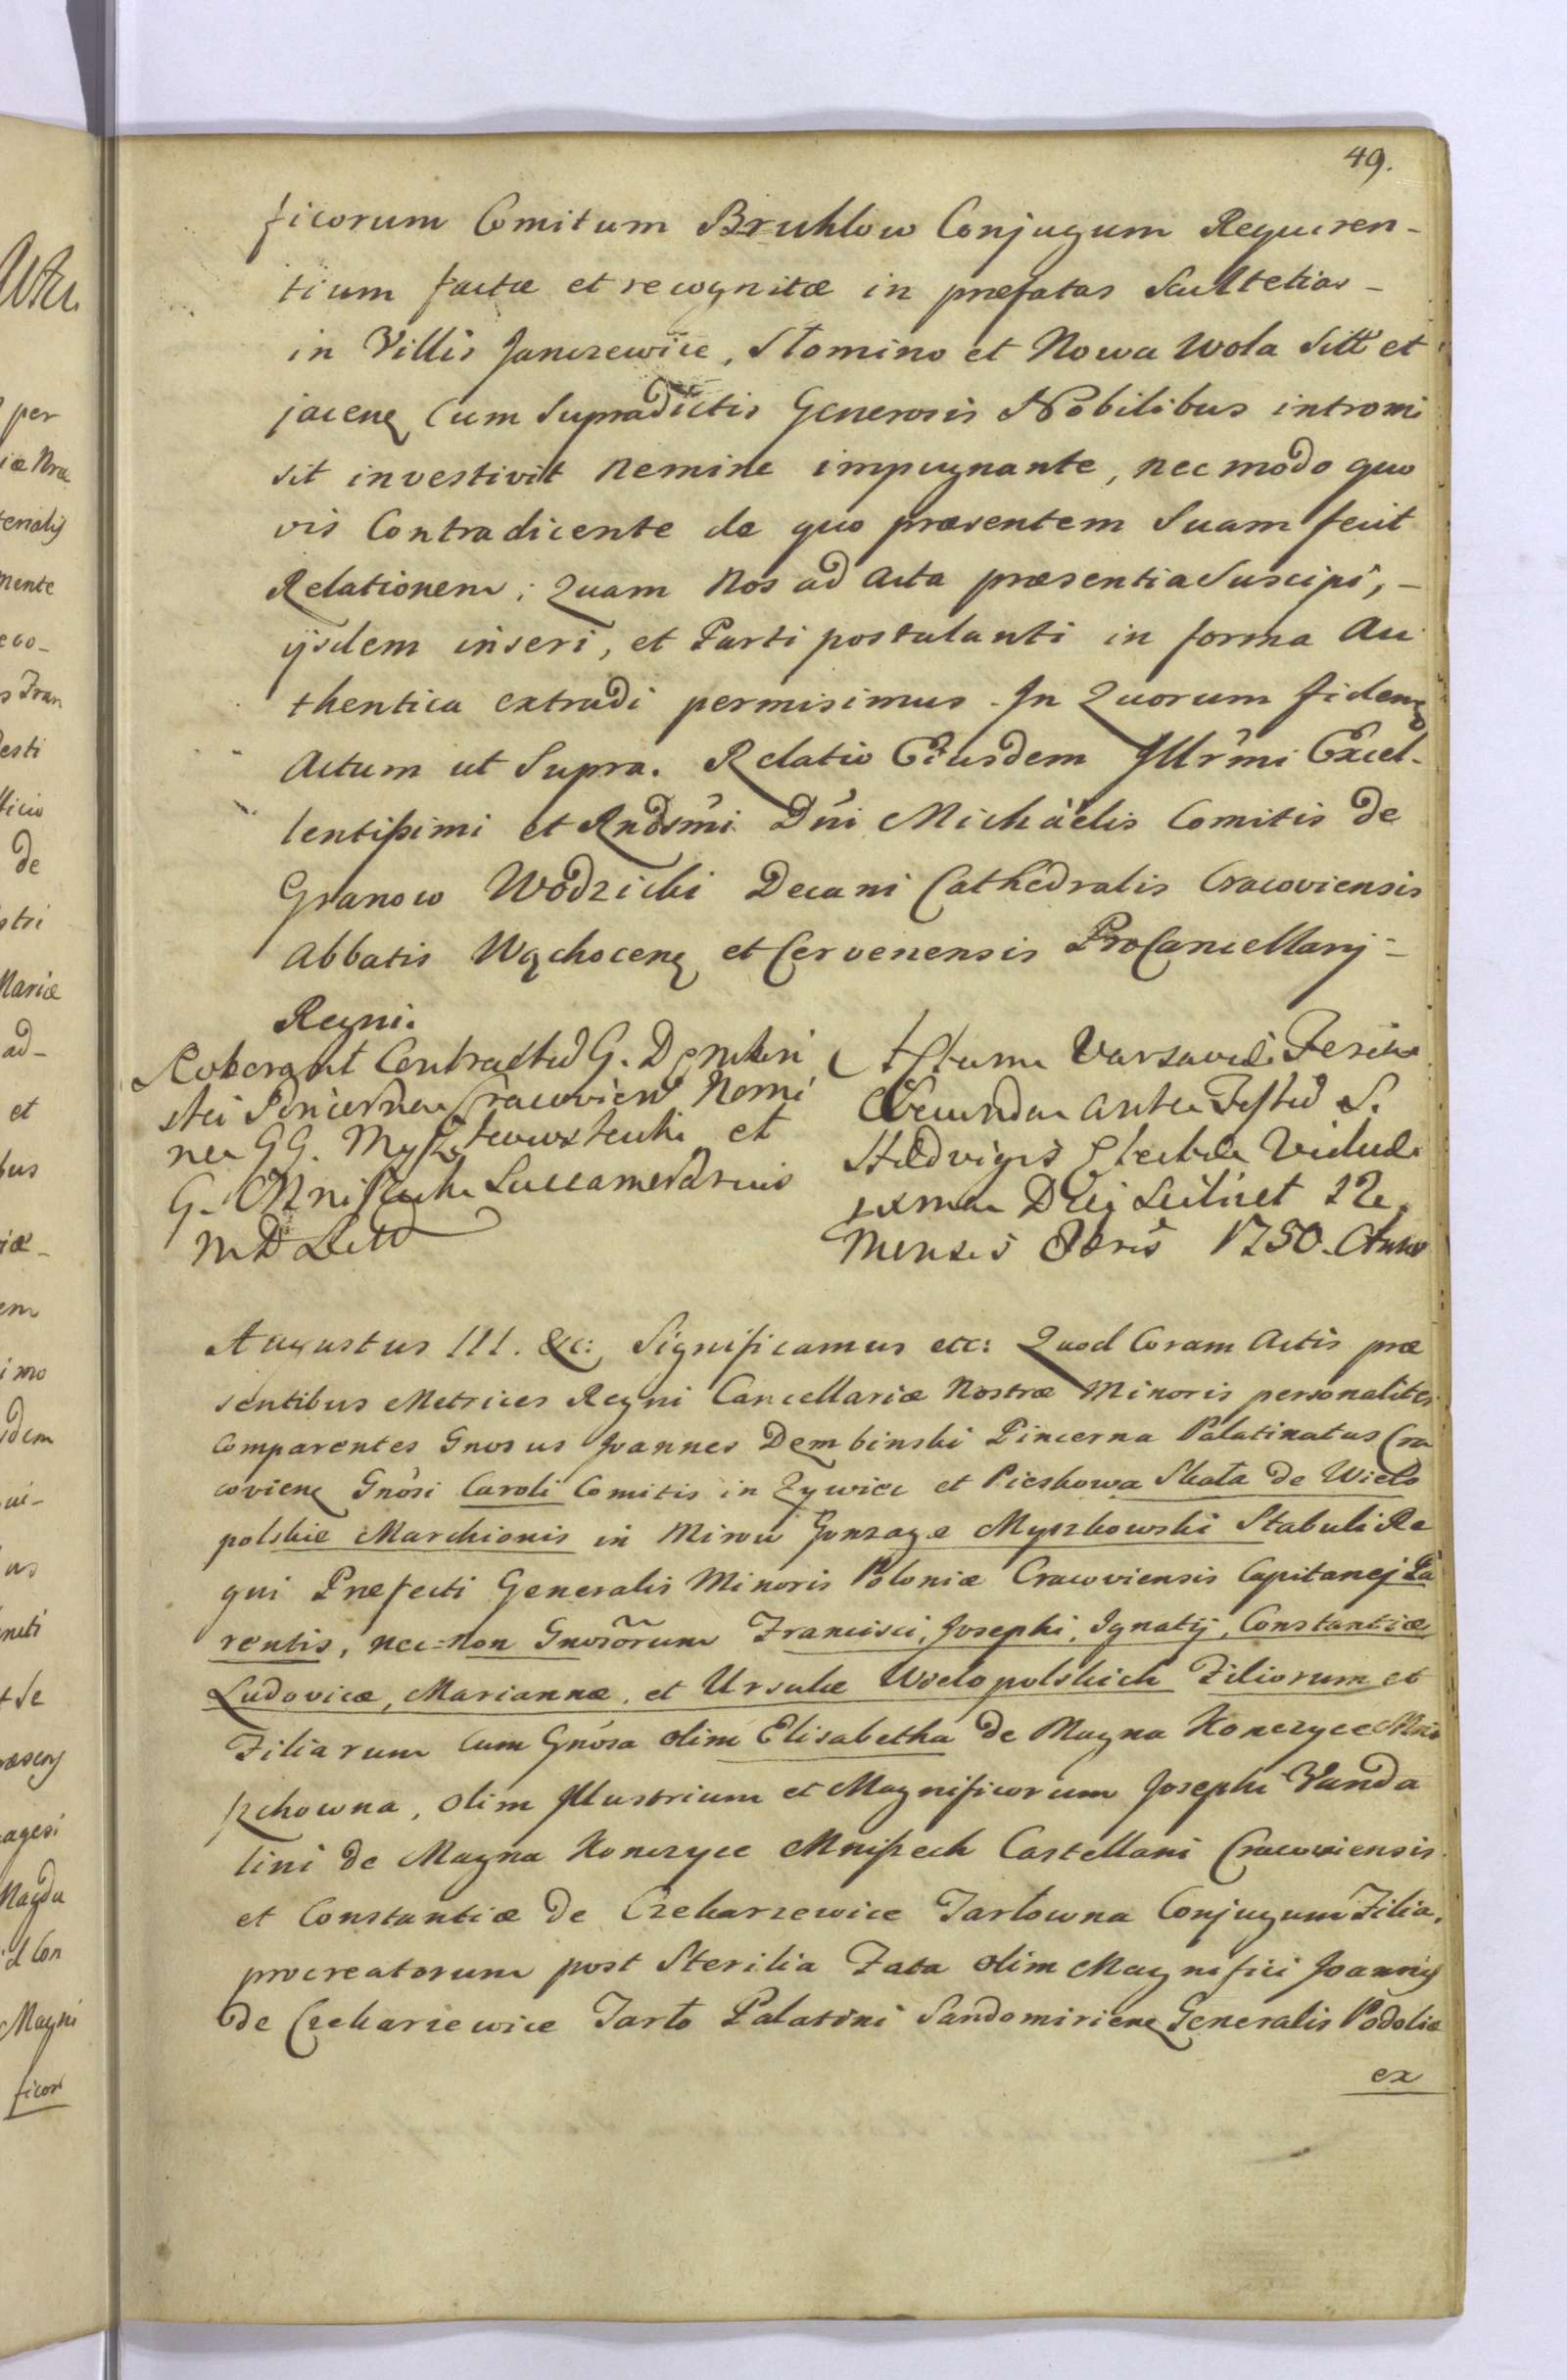 49.
ficorum Comitum Bruhlow Conjugum Requiren-
tium factæ et recognitæ in præfatas Scultetias -
in Villis Janczewice, Słomino et Nowa Wola Sitt et
jacenę Cum Supradictis Generosis Nobilibus intromi
sit investivit nemine impugnante, nec modo quo
vis Contradicente de quo præsentem Suam fecit
Relationem; Quam Nos ad Acta præsentia Suscipi, -
ijsdem inseri, et Parti postulanti in forma Au
thentica extradi permisimus. In Quorum fidem
Actum ut Supra. Relatio Ejusdem Illrmi Excel-
lentissimi et Rndsmi Dni Michäelis Comitis de
Granow Wodzicki Decani Cathedralis Cracoviensis
Abbatis Wąchocenę et Cervenensis ProCancellarij -
Regni.
Roborant Contractus G. Dembin
ski Pincerna Cracovien Nomi
ne GG. et
G. Succamerarius
M D Litt
Actum Varsaviæ Feria
Secunda ante Festum S.
Hedvigis Electæ Viduæ
Die Scilicet 12
Mensis 8bris 1750. Anno
Augustus III. &c: Significamus etc: Quod Coram Actis præ
sentibus Metrices Regni Cancellariæ Nostræ Minoris personaliter
Comparentes Gnosus Joannes Dembinski Pincerna Palatinatus Cra
covienę Gnosi Caroli Comitis in Zywiec et Pieskowa Skała de Wielo
polskie Marchionis in Mirow Gonzage Myszkowski Stabuli Re
gni Præfecti Generalis Minoris Poloniæ Cracoviensis Capitanej Pa
rentis, nec-non Gnosorum Francisci, Josephi, Ignatij, Constantiæ
Ludovicæ, Mariannæ, et Ursulæ Wielopolskich Filiorum et
Filiarum Cum Gnosa olim Elisabetha de Magna Konczyce Mni
szchowna, olim Illustrium et Magnificorum Josephi Vanda
lini de Magna Konczyce Mniszech Castellani Cracoviensis
et Constantiæ de Czekarzewice Tarłowna Conjugum Filia,
procreatorum post Sterilia Fata olim Magnifici Joannis
de Czekarzewice Tarło Palatini Sandomirienę Generalis Podoliæ
ex